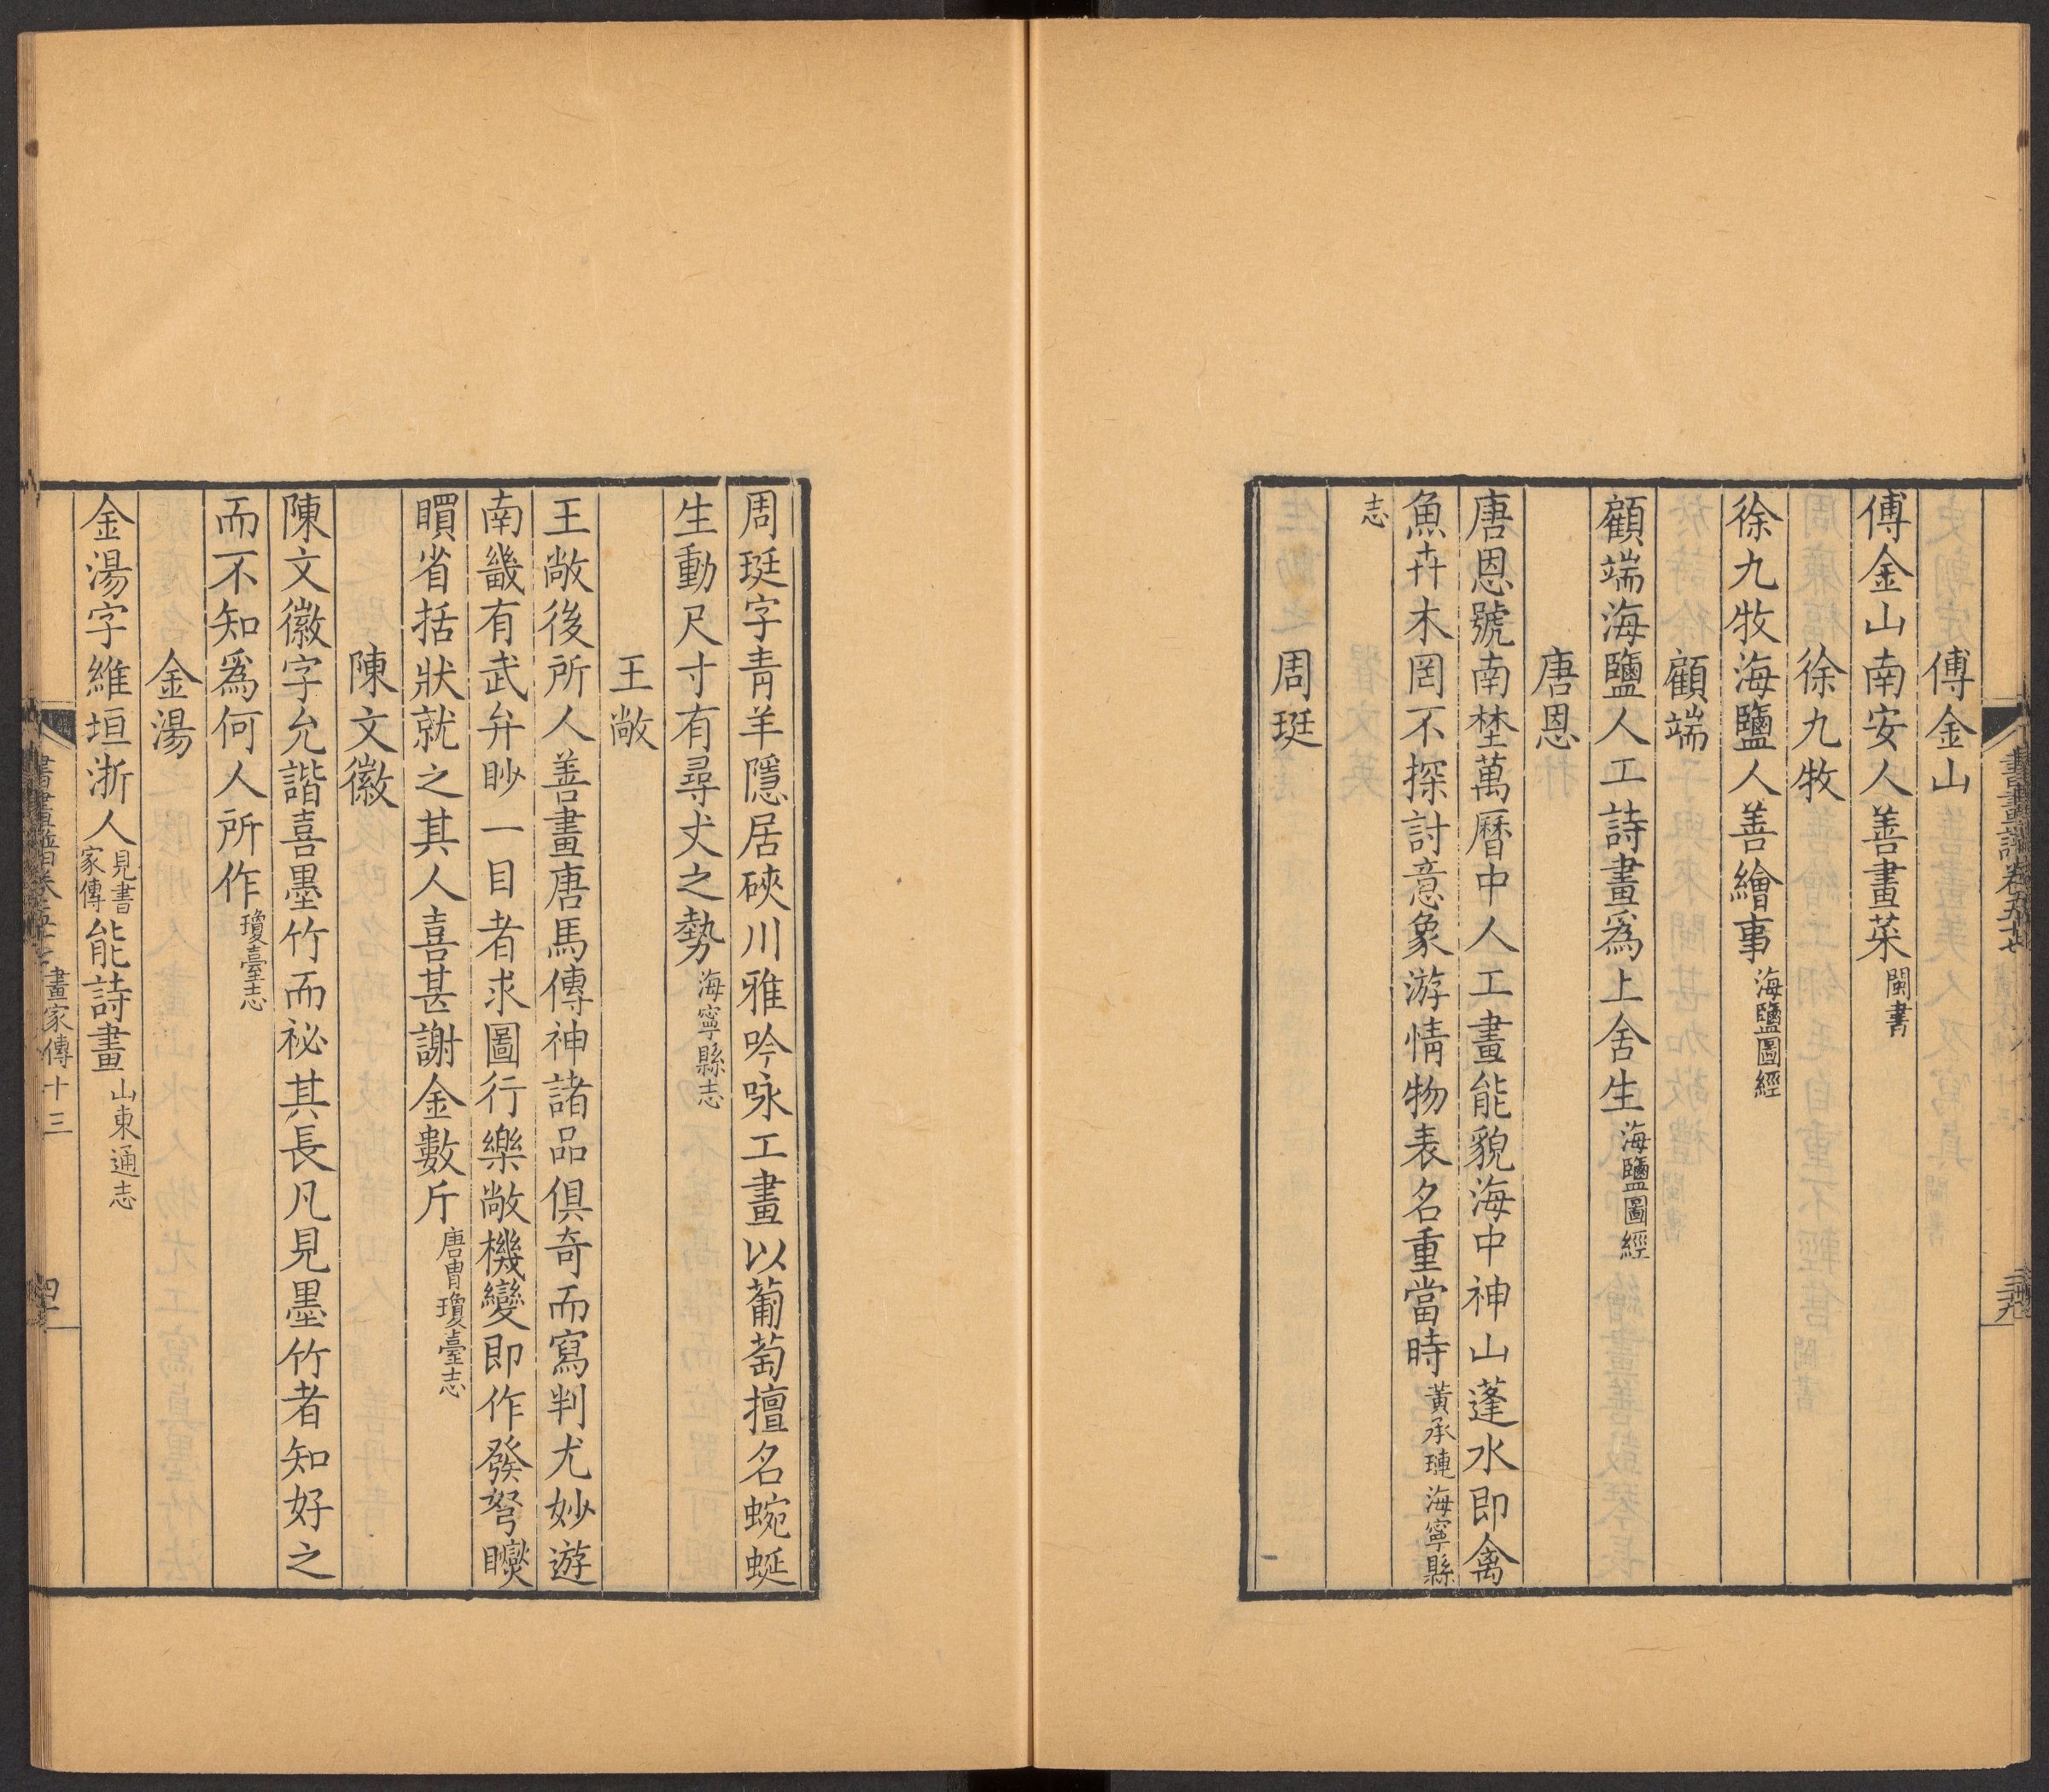 傅金山
傅金山南安人善畫菜閩書
徐九牧
徐九牧海鹽人善繪事海鹽圖經
顧端
顧端海鹽人工詩畫爲上舍生海鹽圖經
唐恩
唐恩號南埜萬曆中人工畫能貌海中神山蓬水即禽
魚卉木罔不探討意象游情物表名重當時黃承璉海寧縣
志
周珽
周珽字青羊隱居硤川雅吟咏工畫以葡萄擅名蜿蜒
生動尺寸有尋丈之勢海寧縣志
王敞
王敞後所人善畫唐馬傳神諸品俱奇而寫判尤妙遊
南畿有武弁眇一目者求圖行樂敞機變即作發弩
瞑省括狀就之其人喜甚謝金數斤唐胄瓊臺志
陳文徽
陳文徽字允諧喜墨竹而祕其長凡見墨竹者知好之
而不知爲何人所作瓊臺志
金湯
金湯字維垣浙人見書家傳能詩畫山東通志
畫家傳十三